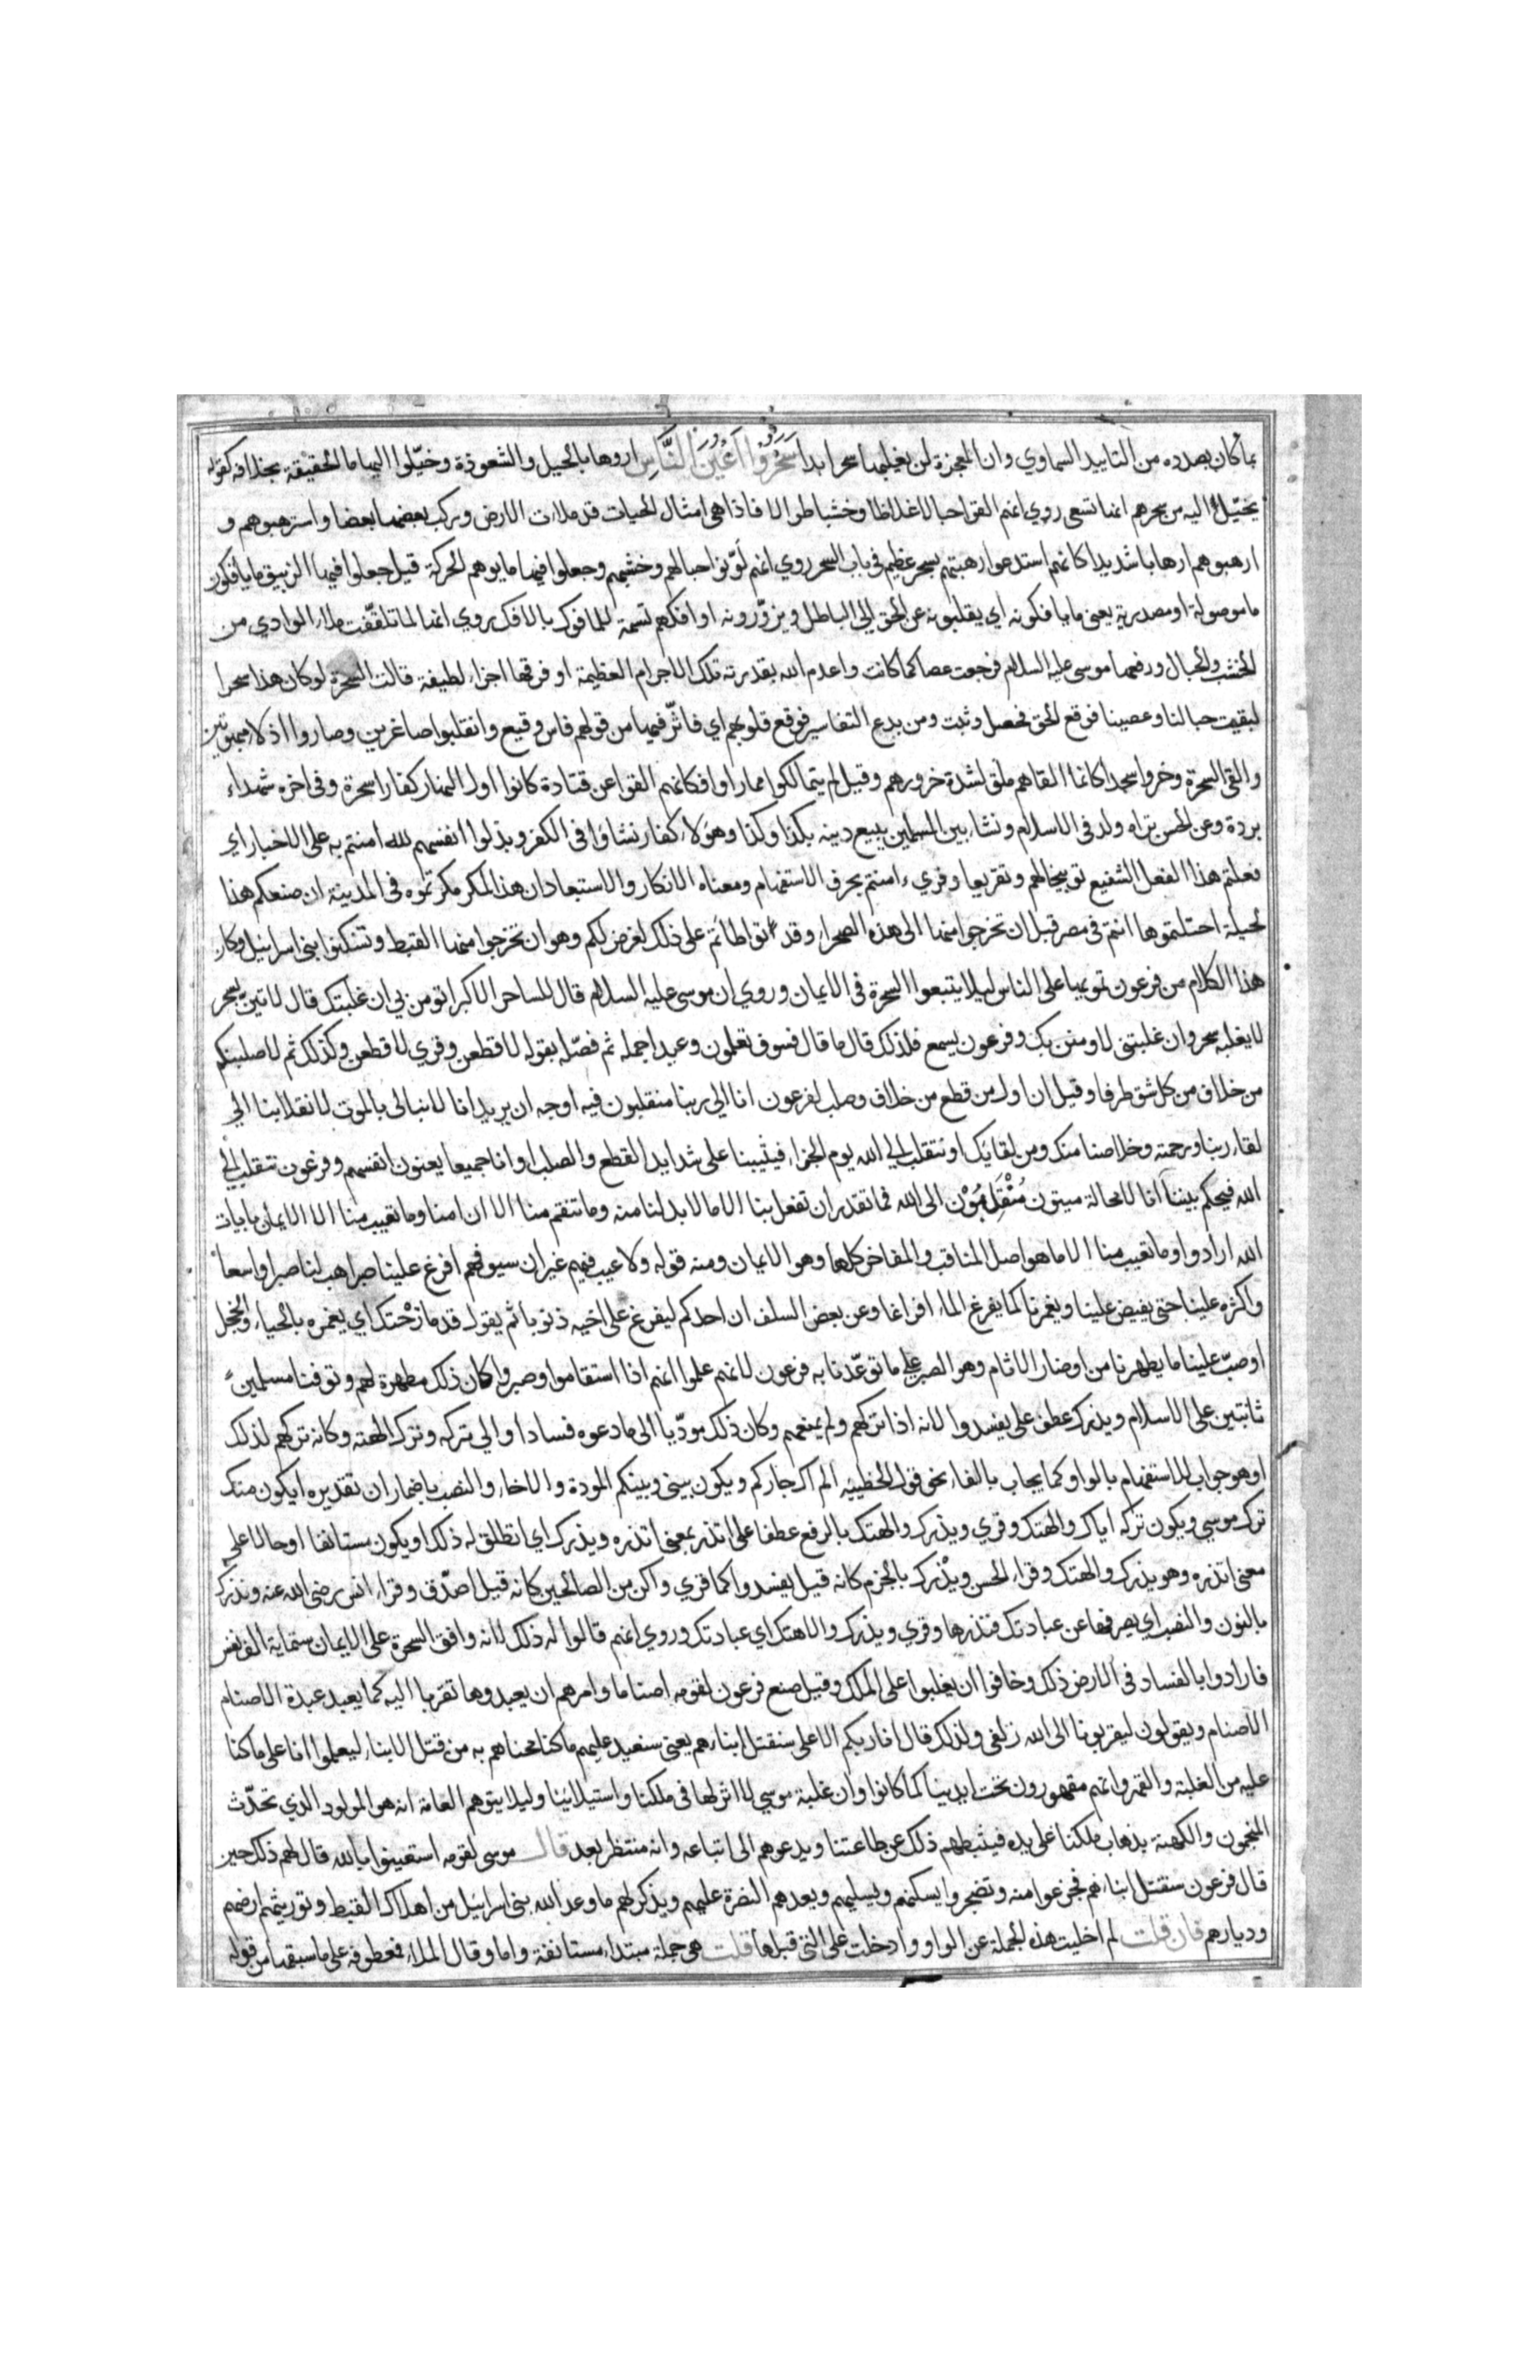 بما كان بصدده من التاييد السماوي وان المعجزة لن يغلبها سحر ابدا سَحَرُوْا اَعْيُنَ النَّاسِ اروها بالحيل والشعوذة وخيّلوا اليها ما الحقيقة بخلافه كقوله
يخيّل اليه من سحرهم انها تسعى روي انهم القوا حبالا غلاظا وخشبا طوالا فاذا هي امثال الحيات قد ملات الارض وركب بعضها بعضا واسترهبوهم و
ارهبوهم ارهابا شديدا كانهم استدعوا رهبتهم بسحر عظيم في باب السحر روي انهم لوّنوا حبالهم وخشبهم وجعلوا فيها ما يوهم الحركة قيل جعلوا فيها الزيبق ما يافكون
ما موصولة او مصدرية يعني ما يافكونه اي يقلبونه عن الحق الى الباطل ويزوّرونه او افكهم تسمية للمافوك بالافك روي انها لما تلقّفت ملاء الوادي من
الخشب والحبال ورفعها موسى عليه السلام فرجعت عصا كما كانت واعدم الله بقدرته تلك الاجرام العظيمة او فرقها اجزاء لطيفة قالت السحرة لو كان هذا سحرا
لبقيت حبالنا وعصينا فوقع الحق فحصل وثبت ومن بدع التفاسير فوقع قلوبهم اي فاثّر فيها من قولهم فاس وقيع وانقلبوا صاغرين وصاروا اذلاء مبهوتين
والقي السحرة وخروا سجدا كانما القاهم ملق لشدة خرورهم وقيل لم يتمالكوا مما راوا فكانهم القوا عن قتادة كانوا اول النهار كفارا سحرة وفي اخره شهداء
بررة وعن الحسن تراه ولد في الاسلام ونشاء بين المسلمين يبيع دينه بكذا وكذا وهؤلاء كفار نشاؤا في الكفر وبذلوا انفسهم لله امنتم به على الاخبار اي
فعلتم هذا الفعل الشنيع توبيخا لهم وتقريعا وقريء امنتم بحرف الاستفهام ومعناه الانكار والاستبعاد ان هذا لمكر مكرتموه في المدينة ان صنعكم هذا
لحيلة احتلتموها انتم في مصر قبل ان تخرجوا منها الى هذه الصحراء وقد تواطاتم على ذلك لغرض لكم وهو ان تخرجوا منها القبط وتسكنوا بني اسرائيل وكان
هذا الكلام من فرعون تمويها على الناس ليلا يتبعوا السحرة في الايمان وروي ان موسى عليه السلام قال للساحر الاكبر اتومن بي ان غلبتك قال لاتين بسحر
لا يغلبه سحر وان غلبتني لاومنن بك وفرعون يسمع فلذلك قال ما قال فسوف تعلمون وعيد اجمله ثم فصّله بقوله لاقطعن وقري لاقطعن وكذلك ثم لاصلبنكم
من خلاف من كل شق طرفا وقيل ان اول من قطع من خلاف وصلب لفرعون انا الى ربنا منقلبون فيه اوجه ان يريد انا لا نبالي بالموت لانقلابنا الى
لقاء ربنا ورحمته وخلاصنا منك ومن لقائك او ننقلب الى الله يوم الجزاء فيثيبنا على شدايد القطع والصلب او انا جميعا يعنون انفسهم وفرعون ننقلب الى
الله فيحكم بيننا او انا لا محالة ميتون مُنْقَلِبُوْن الى الله فما تقدر ان تفعل بنا الا ما لا بد لنا منه وما تنقم منا الا ان امنا وما تعيب منا الا الايمان بايات
الله ارادوا وما تعيب منا الا ما هو اصل المناقب والمفاخر كلها وهو الايمان ومنه قوله ولا عيب فيهم غير ان سيوفهم افرغ علينا صبرا هب لنا صبرا واسعا
واكثره علينا حتى يفيض علينا ويغمرنا كما يفرغ الماء افراغا وعن بعض السلف ان احدكم ليفرغ على اخيه ذنوبا ثم يقول قد مازحتك اي يغمره بالحياء والخجل
او صبّ علينا ما يطهرنا من اوضار الاثام وهو الصبر على ما توعّدنا به فرعون لانهم علموا انهم اذا استقاموا وصبروا كان ذلك مطهرة لهم وتوفنا مسلمين
ثابتين على الاسلام ويذرك عطف على يفسدوا لانه اذا تركهم ولم يمنعهم وكان ذلك مودّيا الى ما دعوه فسادا والى تركه وترك الهته وكانه تركهم لذلك
او هو جواب للاستفهام بالواو كما يجاب بالفاء نحو قول الحطيئه الم اك جاركم ويكون بيني وبينكم المودة والاخاء والنصب باضمار ان تقديره ايكون منك
ترك موسي ويكون تركه اياك والهتك وقري ويذرك والهتك بالرفع عطفا على اتذر بمعنى اتذره ويذرك اي اتطلق له ذلك او يكون مستانفا او حالا على
معنى اتذره وهو يذرك والهتك وقراء الحسن ويذْرك بالجزم كانه قيل يفسدوا كما قري واكن من الصالحين كانه قيل اصّدق وقراء انس رضي الله عنه ونذرك
بالنون والنصب اي يصرفها عن عبادتك فنذرها وقري ويذرك والاهتك اي عبادتك وروي انهم قالوا له ذلك لانه وافق السحرة على الايمان ستماية الف نفس
فارادوا بالفساد في الارض ذلك وخافوا ان يغلبوا على الملك وقيل صنع فرعون لقومه اصناما وامرهم ان يعبدوها تقربا اليه كما يعبد عبدة الاصنام
الاصنام ويقولون ليقربونا الى الله زلفى ولذلك قال انا ربكم الاعلى سنقتل ابناءهم يعني سنعيد عليهم ما كنا محناهم به من قتل الابناء ليعلموا انا على ما كنا
عليه من الغلبة والقهر وانهم مقهورون تحت ايدينا كما كانوا وان غلبة موسي لا اثر لها في ملكنا واستيلائنا وليلا يتوهم العامة انه هو المولود الذي تحدّث
المنجمون والكهنة بذهاب ملكنا على يده فيثبطهم ذلك عن طاعتنا ويدعوهم الى اتباعه وانه منتظر بعد قال موسى لقومه استعينوا بالله قال لهم ذلك حين
قال فرعون سنقتل ابناءهم فجزعوا منه وتضجروا يسكنهم ويسليهم ويعدهم النصرة عليهم ويذكر لهم ما وعد الله بني اسرائيل من اهلاك القبط وتوريثهم ارضهم
وديارهم فان قلت لم اخليت هذه الجملة عن الواو وادخلت على التي قبلها قلت هي جملة مبتداء مستانفة واما وقال الملاء فمعطوفة على ما سبقها من قوله